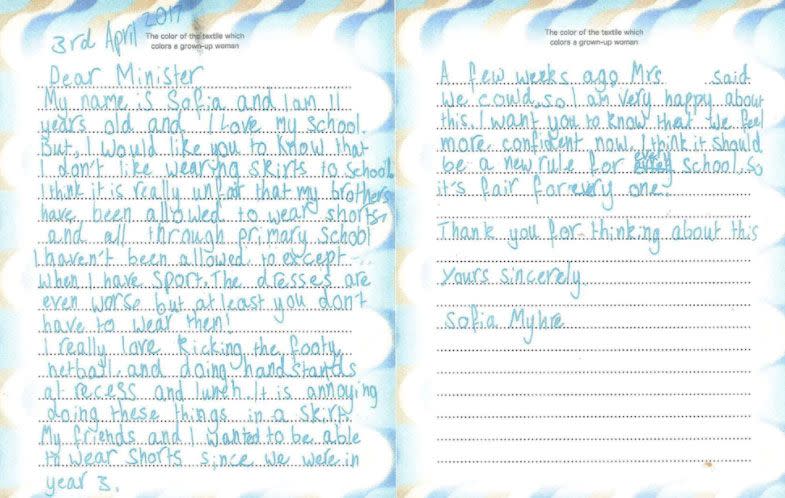 3rd April 2017
The color of the textile which
colors a grown-up woman
Dear Minister
My name is Sofia and I am 11
years old and I Love my school.
But, I would like you to know that
I don't like wearing skirts to school.
I think it is really unfair that my brothers
have been allowed to wear shorts
and all through primary school
I haven't been allowed to except
when I have sport. The dresses are
even worse but at least you don't
have to wear them!
I really love kicking the footy,
netball and doing handstands
at recess and lunch. It is annoying
doing these things in a skirt.
My friends and I wanted to be able
to wear shorts since we were in
year 3.
The color of the textile which
colors a grown-up woman
A few weeks ago, Mrs said
we could, so I am very happy about
this. I want you to know that we feel
more confident now. I think it should
be a new rule for every school, so
it's fair for every one.
Thank you for thinking about this
Yours sincerely
Sofia Myhre